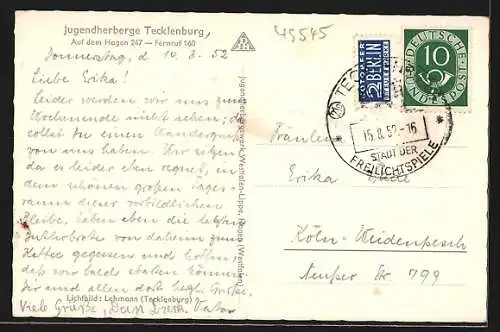 45545
Jugendherberge Tecklenburg
Auf dem Hagen 247 — Fernruf 160
Donnerstag, d. 14.8.52
Liebe Erika!
Leider werden wir uns zum
Wochenende nicht sehen, da
sollst du einen Wandergruß
von uns haben. Wir sitzen,
da es leider eben regnet, in
dem schönen großen Tages-
raum dieser vorbildlichen
Bleibe, haben eben die letzten
Butterbrote von daheim zum
Kaffee gegessen und hoffen,
daß wir bald starten können.
Dir und allen dort herzl. Grüße,
Viele Grüße, Dein Dreh. Vater
Lichtbild: Lehmann (Tecklenburg)
Jugendherbergswerk Westfalen-Lippe, Hagen (Westfalen)
NOTOPFER
2 BERLIN
STEUERMARKE
DEUTSCHE
10
BUNDESPOST
TECKLENBURG
15.8.52-16
STADT DER
FREILICHTSPIELE
Fräulein
Erika
Köln-Weidenpesch
Neußer Str 799